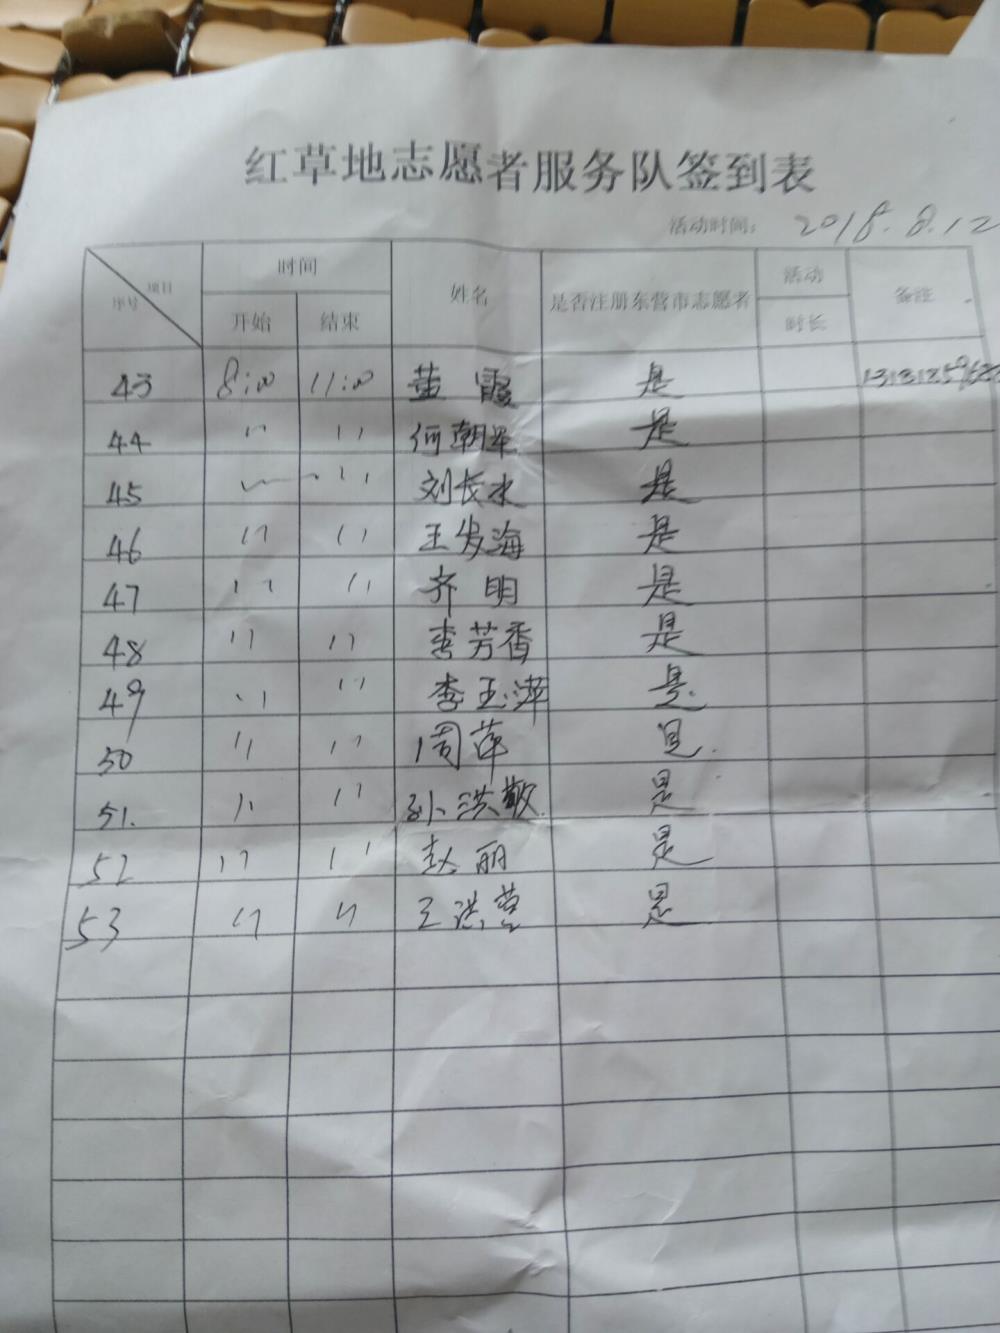 红草地志愿者服务队签到表
活动时间: 2018.8.12
项目 序号 时间 开始 结束 姓名 是否注册东营市志愿者 活动时长 备注
43 8:00 11:00 董霞 是
44 〃 〃 何朝军 是
45 〃 〃 刘长水 是
46 〃 〃 王发海 是
47 〃 〃 齐明 是
48 〃 〃 李芳香 是
49 〃 〃 李玉萍 是
50 〃 〃 周萍 是
51. 〃 〃 孙洪敏 是
52 〃 〃 赵丽 是
53 〃 〃 王洪营 是